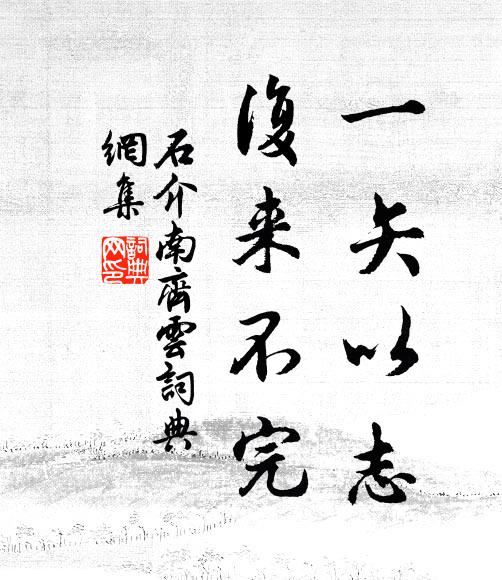 一矢以志
復来不完
石介南齊雲詞典
網集
詞典
网印